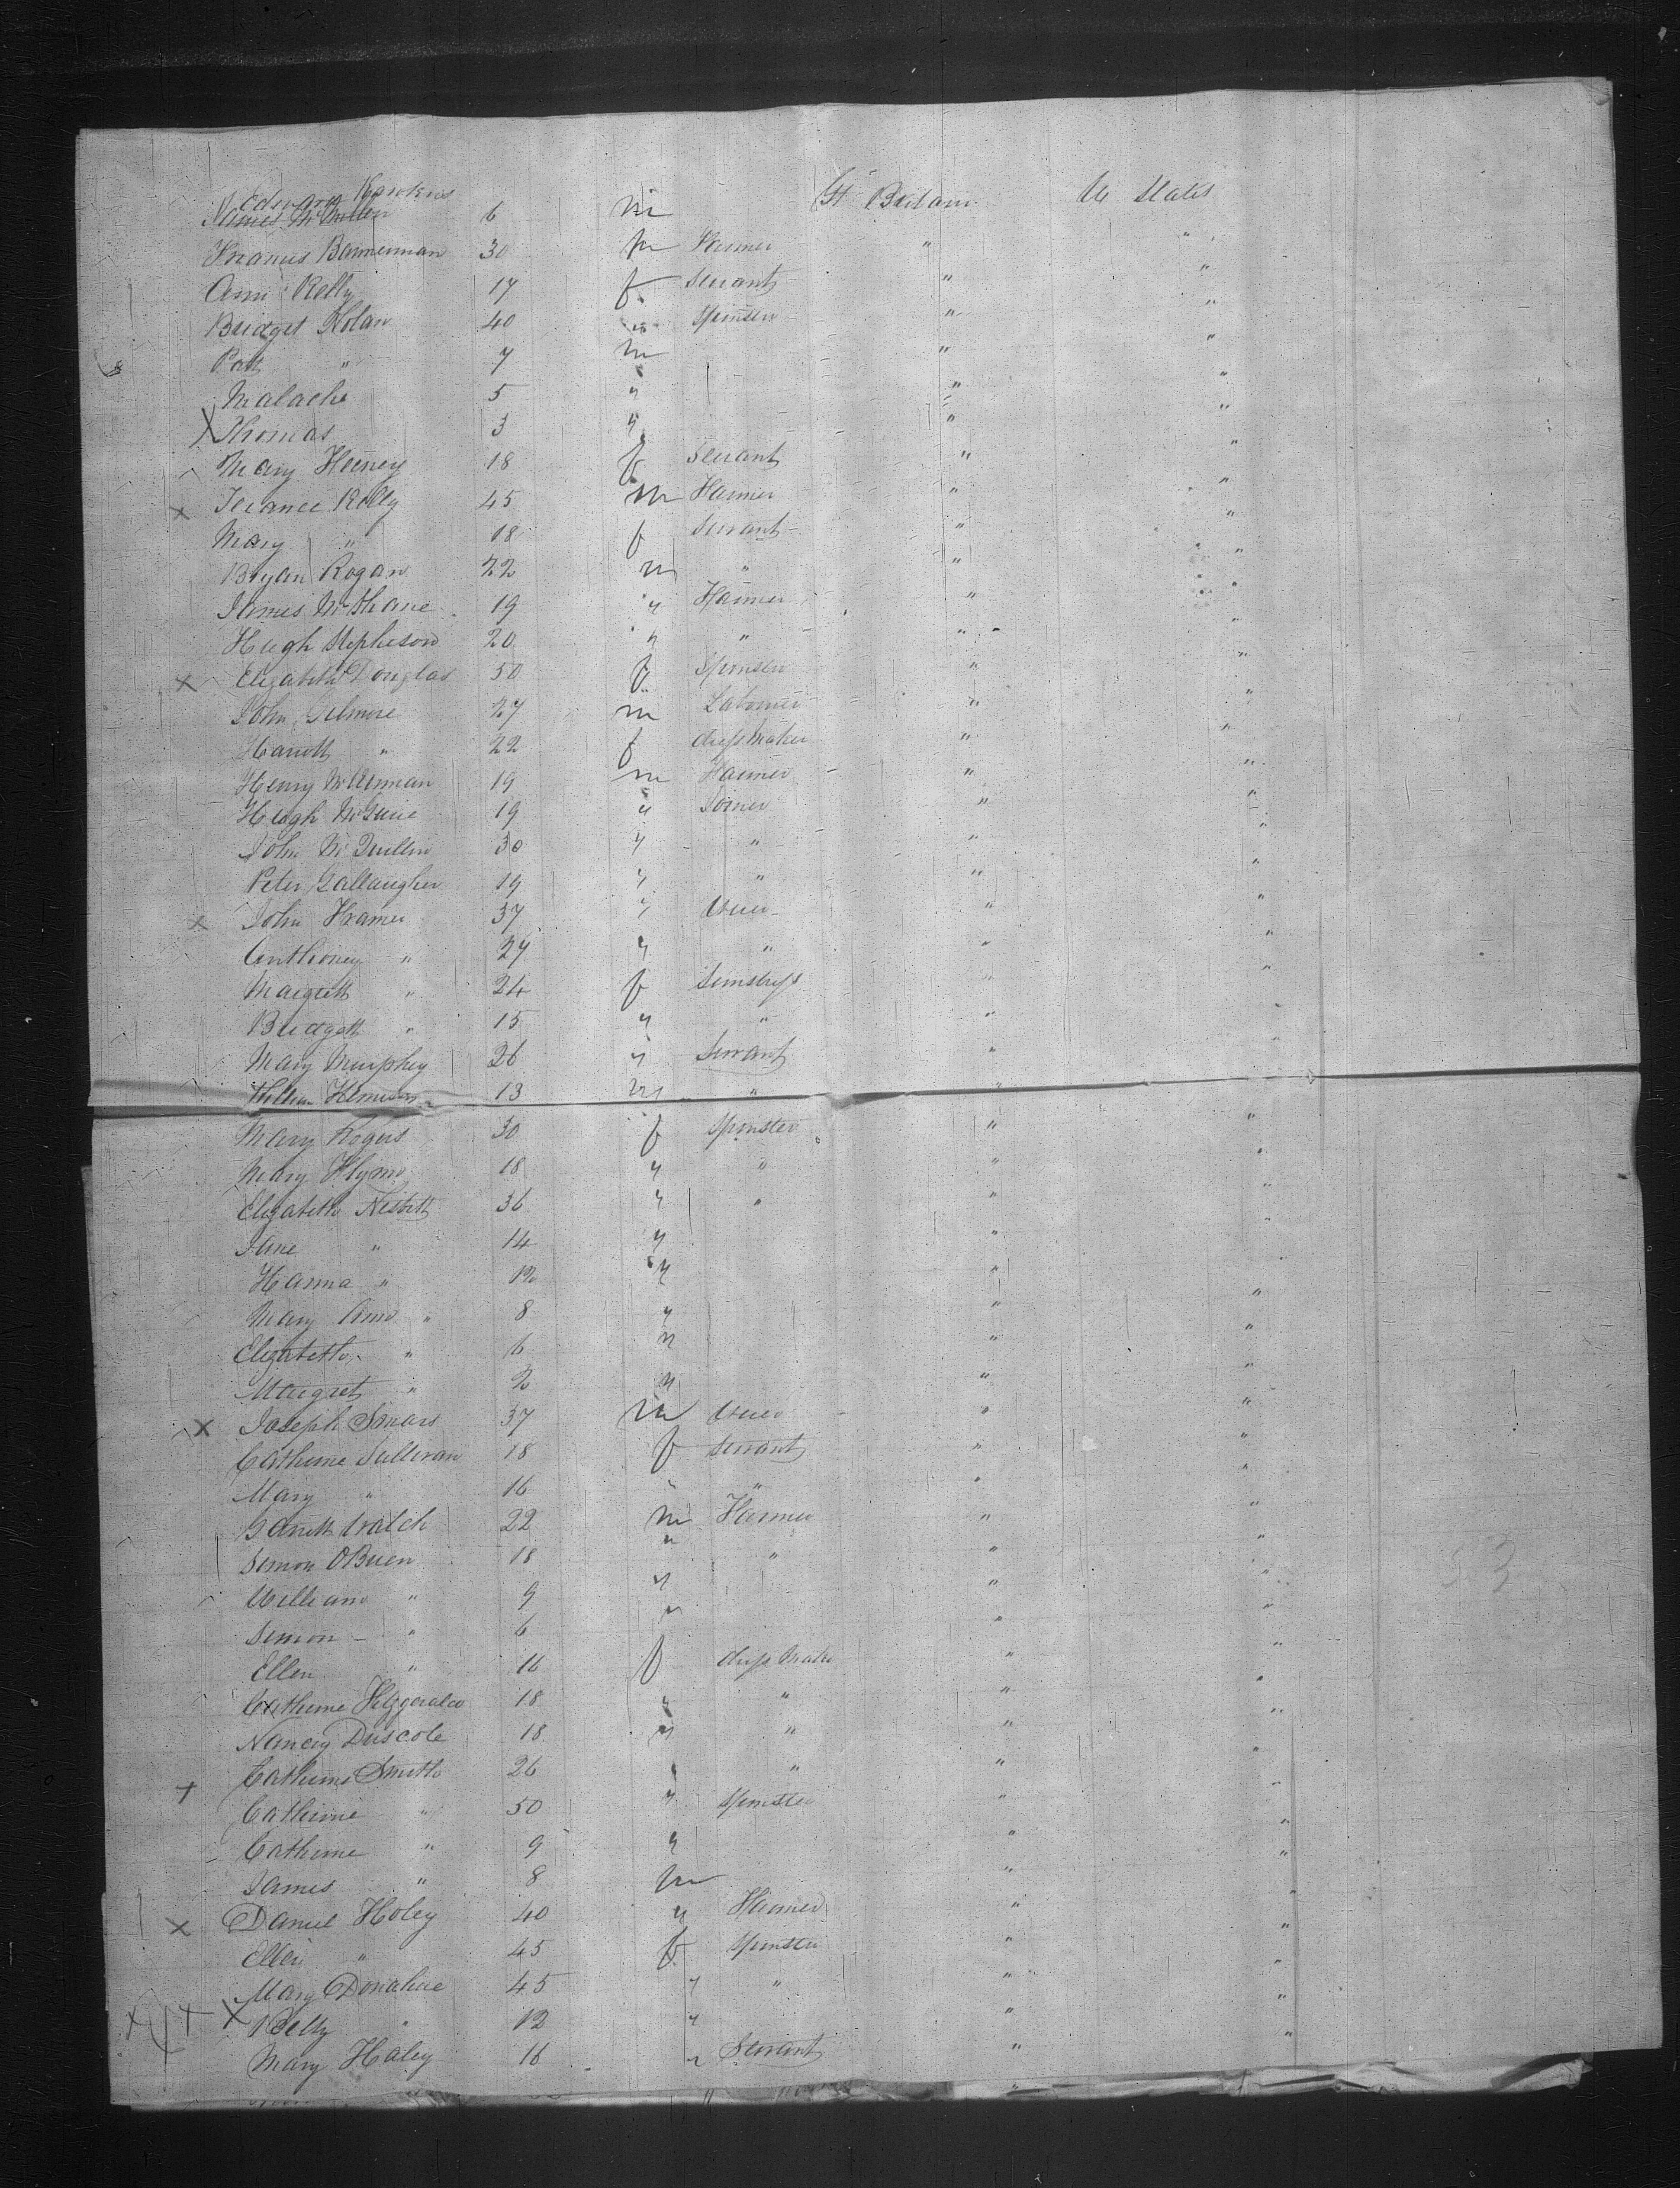 Edward Hawkins
James McMullen 6 m Gt Britain U States
Francis Bannerman 30 m Farmer " "
Ann Kelly 17 f Servant " "
Bridget Nolan 40 " Spinster " "
Patt " 7 m " "
Malache 5 " " "
X Thomas 3 " " "
Mary Feeney 18 f Servant " "
x Terance Kelly 45 m Farmer " "
Mary " 18 f Servant " "
Bryan Rogan 22 m " " "
James McShane 19 " Farmer " "
Hugh Stepheson 20 " " " "
x Elizabeth Douglas 50 f Spinster " "
John Gilmore 27 m Labourer " "
Hariott " 22 f dressmaker " "
Henry 19 m Farmer " "
Hugh McGuire 19 " Joiner " "
John McQuillin 30 " " " "
Peter Gallaugher 19 " " " "
x John Framer 37 " " "
Anthoney " 27 " " " "
Margrett " 24 f Semstress " "
Bridgett " 15 " " " "
Mary Murphey 26 " Servant " "
13 m " "
Mary Rogers 30 f Spinster " "
Mary Flynn 18 " " " "
Elizabeth Nesbitt 36 " " " "
Jane " 14 " " "
Hanna " 12 " " "
Mary Ann " 8 " " "
Elizabeth " 6 " " "
Margret " 2 " " "
x Joseph 37 m " "
Catherine Sullivan 18 f Servant " "
Mary " 16 " " " "
Garrett Walch 22 m Farmer " "
Simon OBrien 18 " " " "
William " 9 " " "
Simon " 6 " " "
Ellen " 16 f dress maker " "
Catherine Fitzgerald 18 " " " "
Nancy Driscole 18 " " " "
x Catherine Smith 26 " " " "
Catherine " 50 " Spinster " "
Catherine " 9 " " "
James " 8 m " "
x Daniel Foley 40 " Farmer " "
Ellen " 45 f Spinster " "
Mary Donahue 45 " " " "
x + x " 12 " " "
Mary Haley 16 " Servant " "
53